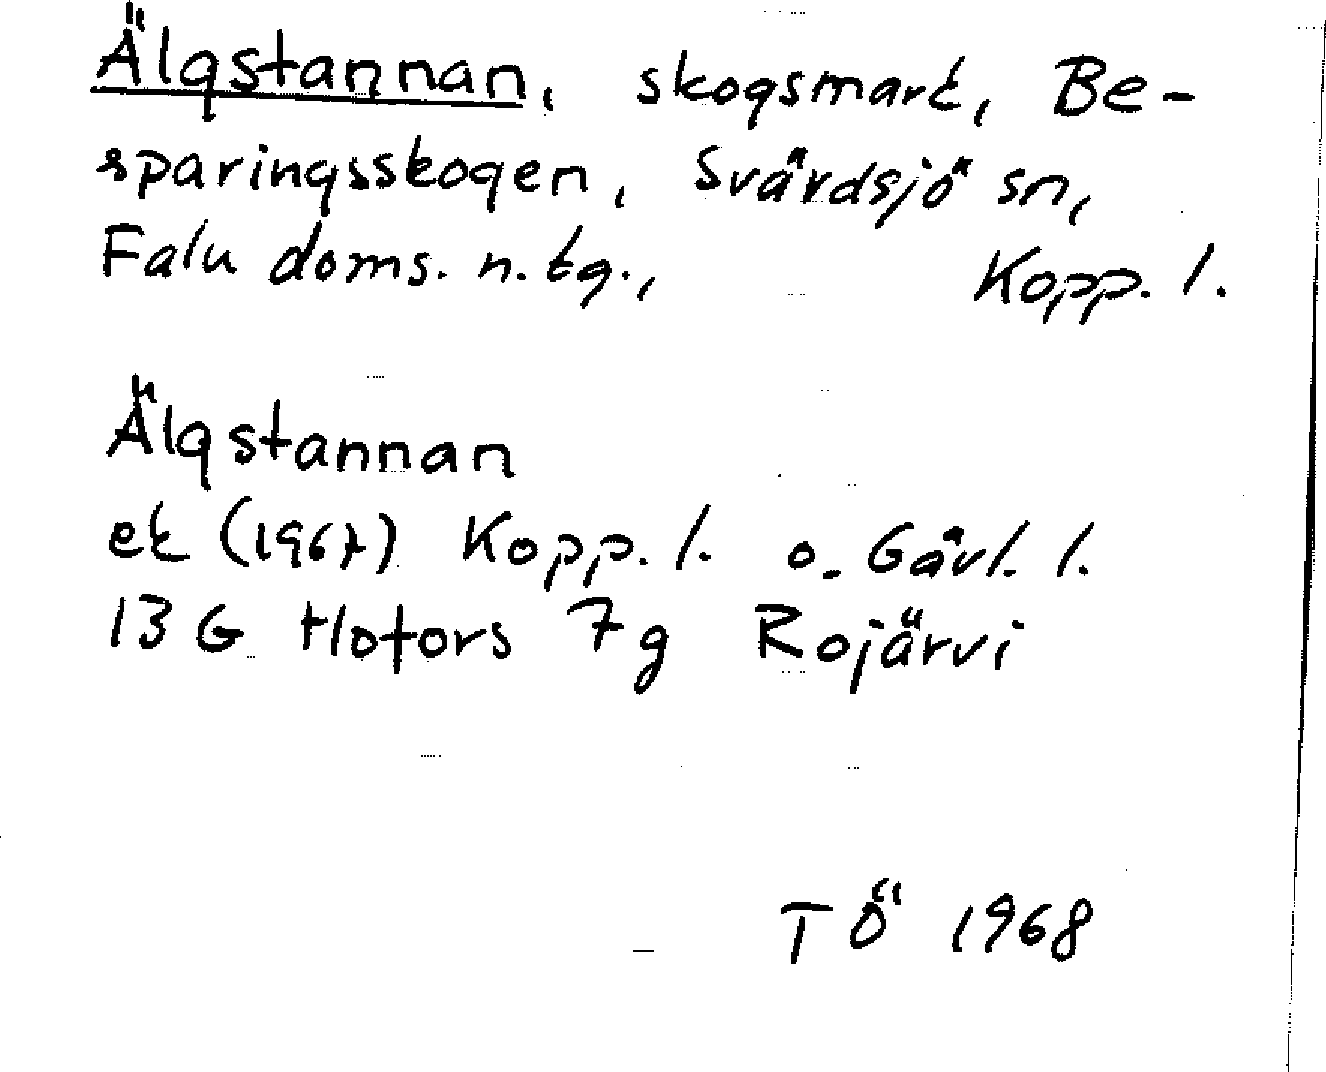 Älgstannan, skogsmark, Be-
sparingsskogen, Svärdsjö sn,
Falu doms. n. tg., Kopp. l.
Älgstannan
ek (1967) Kopp. l. o. Gävl. l.
13 G Hofors 7 g Rojärvi
T Ö 1968